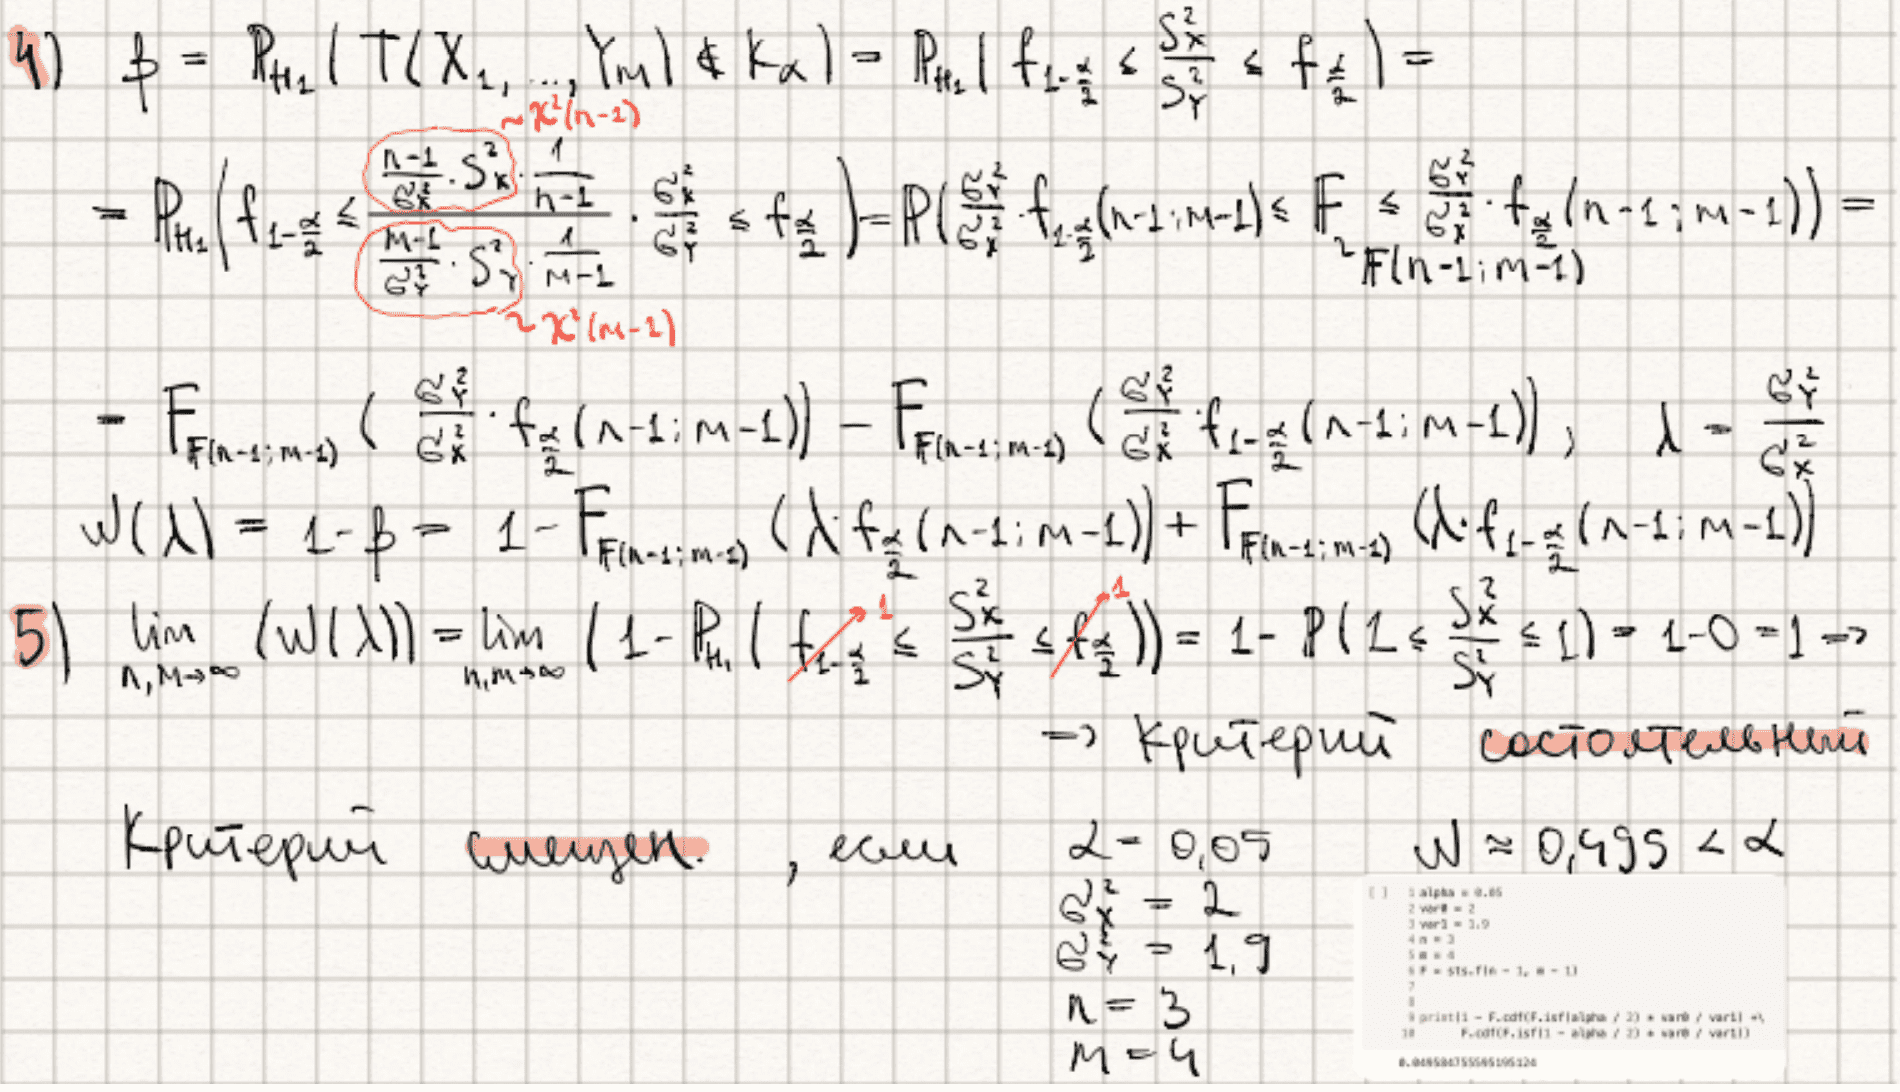 4) β = ℙ_{H₁} ( T(X₁, ..., Y_M) ∉ K_α ) = ℙ_{H₁} ( f_{1-α/2} ≤ S²_X / S²_Y ≤ f_{α/2} ) =
~ χ²(n-1)
= ℙ_{H₁} ( f_{1-α/2} ≤ ( (n-1)/σ²_X · S²_X · 1/(n-1) ) / ( (m-1)/σ²_Y · S²_Y · 1/(m-1) ) · σ²_X/σ²_Y ≤ f_{α/2} ) = ℙ( σ²_Y/σ²_X · f_{1-α/2}(n-1; m-1) ≤ F ≤ σ²_Y/σ²_X · f_{α/2}(n-1; m-1) ) =
~ 𝔽(n-1; m-1)
~ χ²(m-1)
= F_{𝔽(n-1; m-1)} ( σ²_Y/σ²_X · f_{α/2}(n-1; m-1) ) - F_{𝔽(n-1; m-1)} ( σ²_Y/σ²_X · f_{1-α/2}(n-1; m-1) ) ; λ = σ²_Y/σ²_X
W(λ) = 1-β = 1 - F_{𝔽(n-1; m-1)} ( λ · f_{α/2}(n-1; m-1) ) + F_{𝔽(n-1; m-1)} ( λ · f_{1-α/2}(n-1; m-1) )
5) lim_{n,m→∞} (W(λ)) = lim_{n,m→∞} ( 1 - ℙ_{H₁} ( f_{1-α/2} → 1 ≤ S²_X/S²_Y ≤ f_{α/2} → 1 ) ) = 1 - ℙ( 1 ≤ S²_X/S²_Y ≤ 1 ) = 1-0 = 1 =>
=> Критерий состоятельный
Критерий смещен. , если α = 0,05 W ≈ 0,495 < α
σ²_X = 2
σ²_Y = 1,9
n = 3
m = 4
[ ] 1 alpha = 0.05
2 var0 = 2
3 var1 = 1.9
4 n = 3
5 m = 4
6 F = sts.f(n - 1, m - 1)
7
8
9 print(1 - F.cdf(F.isf(alpha / 2) * var0 / var1) +\
10 F.cdf(F.isf(1 - alpha / 2) * var0 / var1))